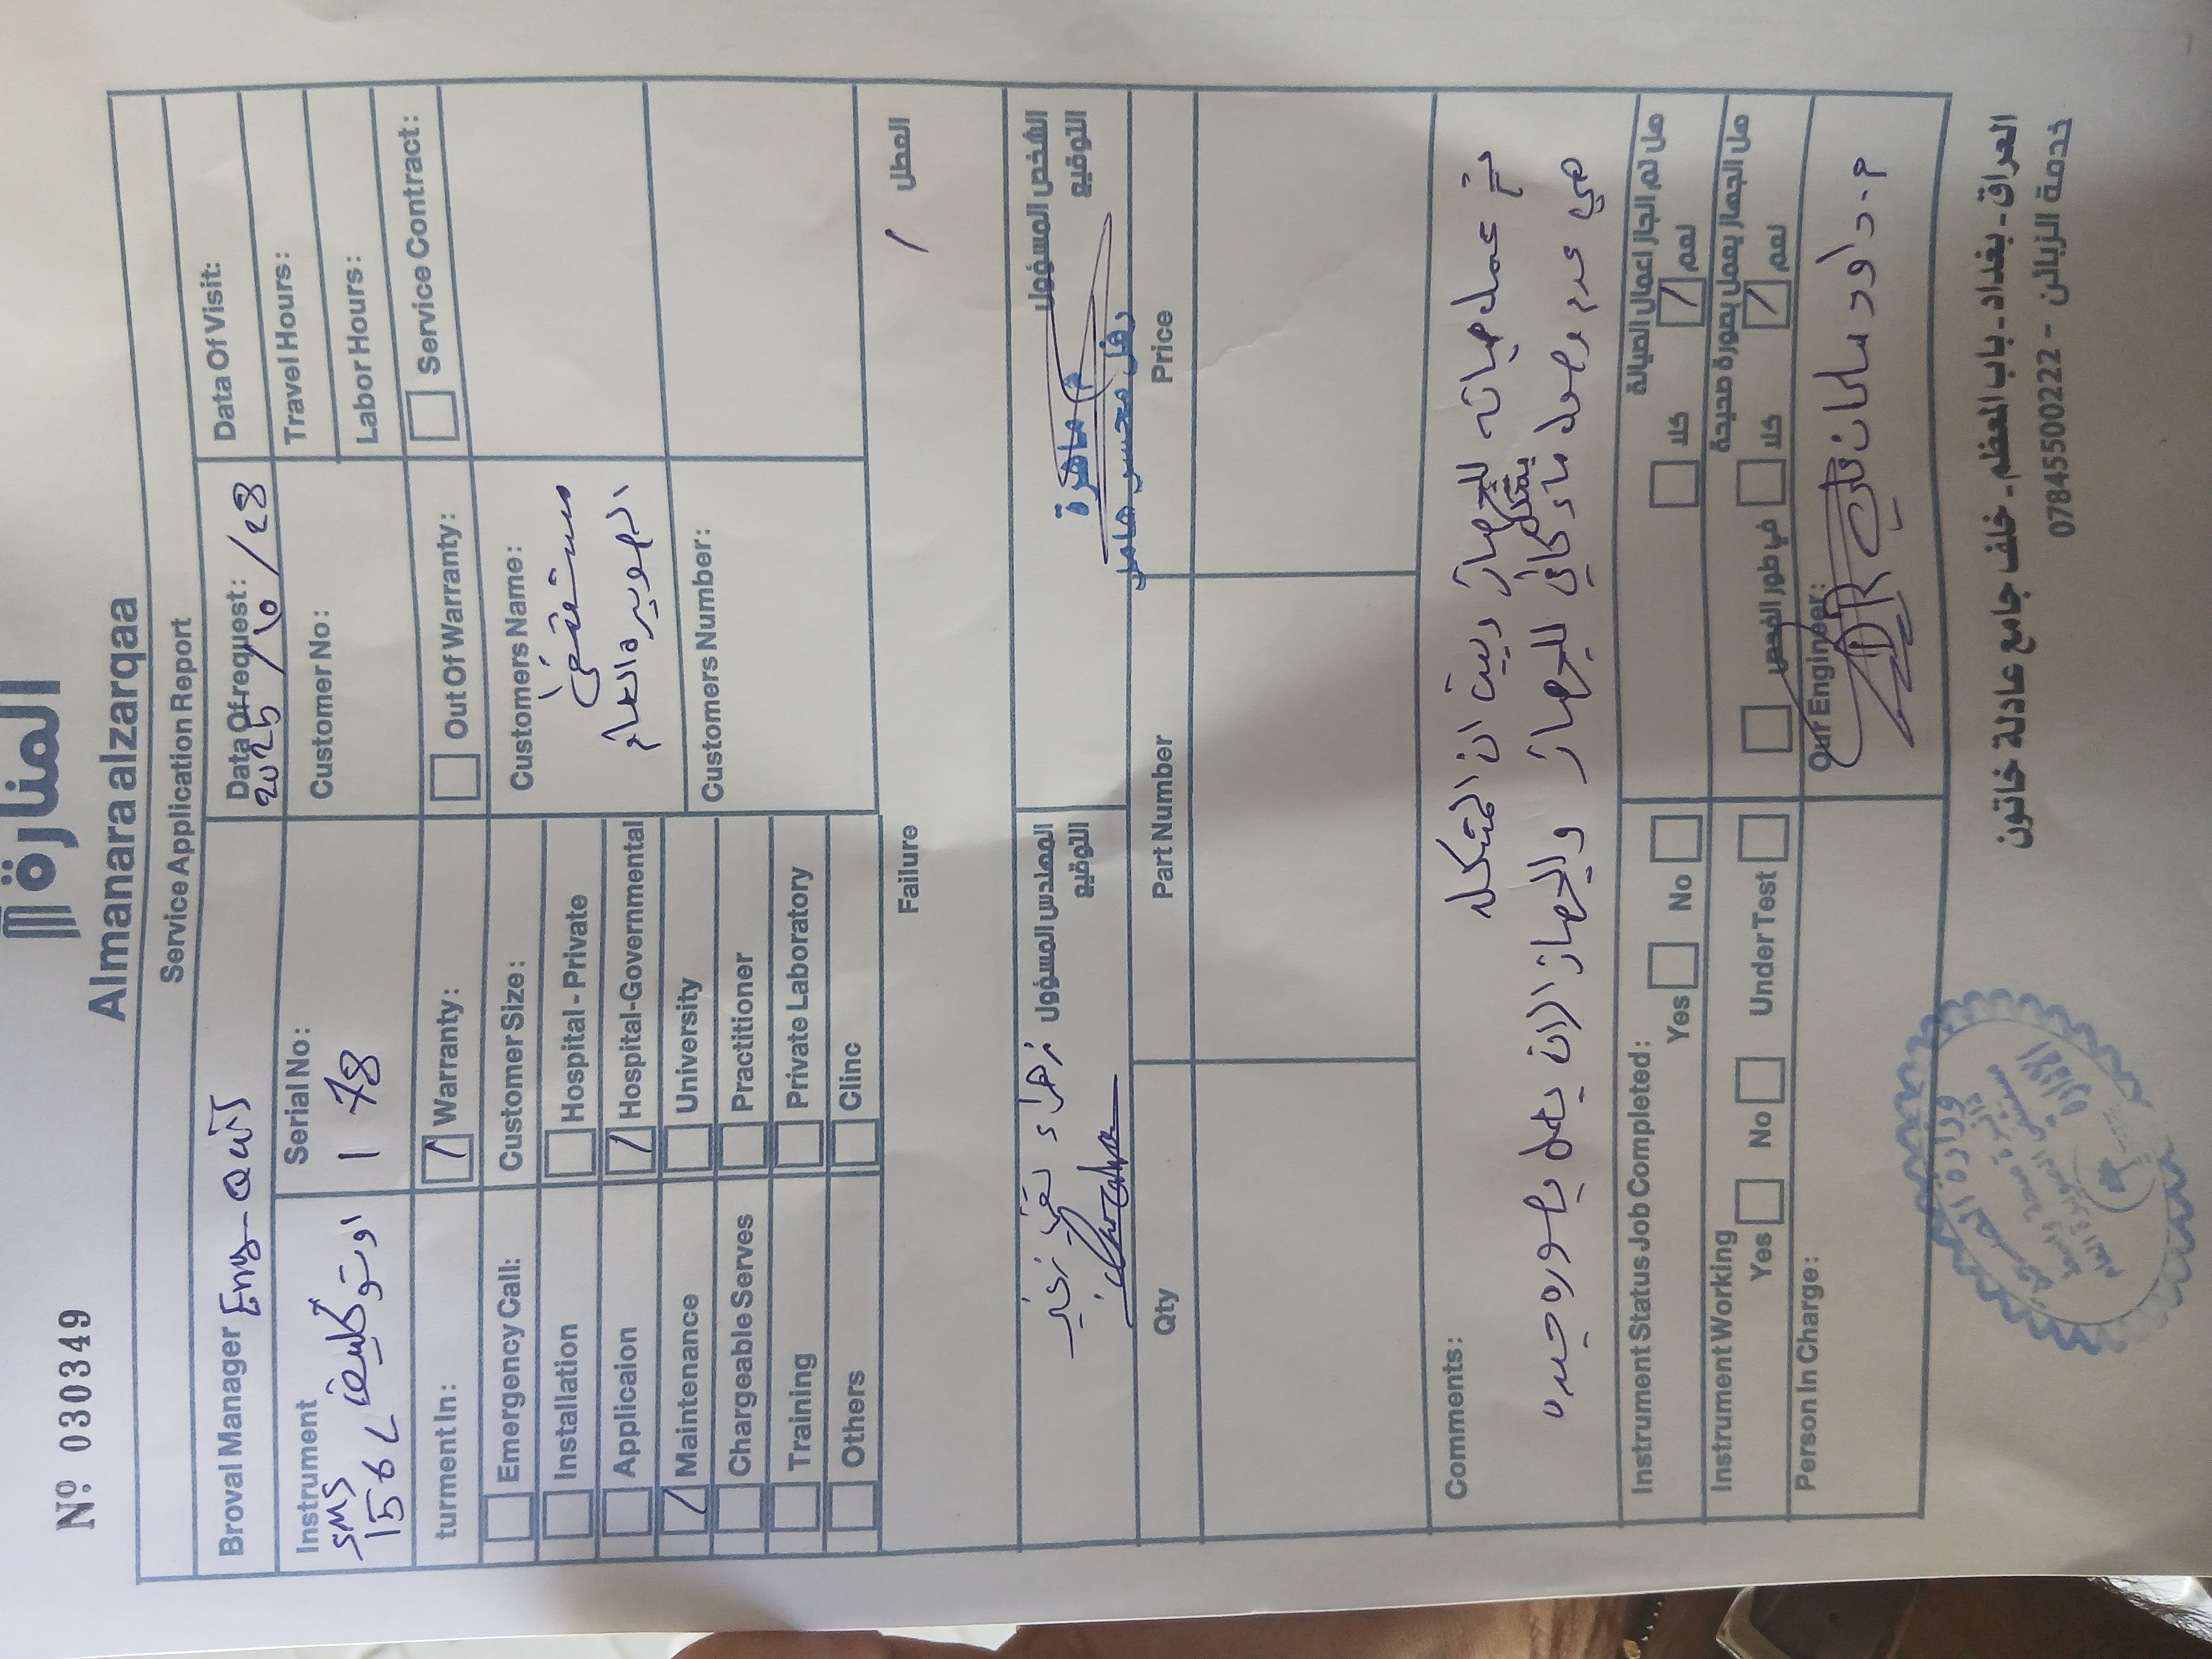 Nº 030349
المنارة
Almanara alzarqaa
Service Application Report
Broval Manager Eng-
Data Of request: 2025/10/28
Data Of Visit:
Instrument اوتوكليف
SMS
156L
Serial No:
178
Customer No:
Travel Hours:
Labor Hours:
turment In:
Warranty:
Out Of Warranty:
Service Contract:
Emergency Call:
Installation
Applicaion
Maintenance
Chargeable Serves
Training
Others
Customer Size:
Hospital - Private
Hospital-Governmental
University
Practitioner
Private Laboratory
Clinc
Customers Name:
مستشفى
الصويره العام
Customers Number:
Failure
العطل
المهندس المسؤول
التوقيع
زهراء تقي
الشخص المسؤول
التوقيع
م. ماهرة
Qty
Part Number
Price
Comments:
تم عمل صيانه للجهاز تبين ان المشكله
هي عدم وصول ماء بشكل كافي للجهاز والجهاز الان يعمل بصوره جيده
Instrument Status Job Completed:
Yes No
هل تم انجاز اعمال الصيانة
كلا نعم
Instrument Working
Yes No Under Test
هل الجهاز يعمل بصورة صحيحة
في طور الفحص كلا نعم
Person In Charge:
Our Engineer:
م. داود سلمان
وزارة الصحة
العراق - بغداد - باب المعظم - خلف جامع عادلة خاتون
خدمة الزبائن - 07845500222